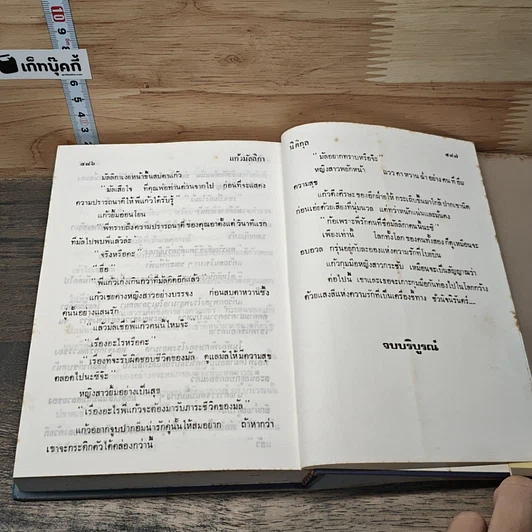 10
9
8
เก็ทบุ๊คกี้
5
4
3
๔๘๖
แก้วมัลลิกา
มัลลิกาเงยหน้าขึ้นสบตาแก้ว
“มัลเสียใจ ที่คุณพ่อท่านด่วนจากไป ก่อนที่จะแสดง
ความปรารถนาดีให้พี่แก้วได้รับรู้”
แก้วยิ้มอ่อนโยน
“พี่ทราบถึงความปรารถนาดีของคุณอาตั้งแต่วินาทีแรก
ที่มัลไปพบพี่แล้วละ”
“จริงหรือคะ”
“ฮื่อ”
“พี่แก้วเก่งเกินกว่าที่มัลคิดอีกแล้ว”
แก้วเชยคางหญิงสาวอย่างบรรจง ก่อนสบตาหวานซึ้ง
คู่นั้นอย่างแสนรัก
“แล้วมัลเชื่อพี่แก้วคนนี้ไหมจ๊ะ”
“เรื่องอะไรหรือคะ”
“เรื่องที่จะรับผิดชอบชีวิตของมัล ดูแลมัลให้มีความสุข
ตลอดไปน่ะซีจ๊ะ”
หญิงสาวยิ้มอย่างเป็นสุข
“เรื่องอะไรพี่แก้วจะต้องมารับภาระชีวิตของมัล”
แก้วอยากจูบปากอิ่มน่ารักคู่นั้นให้สมอยาก ถ้าหากว่า
เขาจะกระดิกตัวได้คล่องกว่านี้
นิดิกุล
๔๘๗
“มัลอยากทราบหรือจ๊ะ”
หญิงสาวพยักหน้า แววตาหวานฉ่ำอย่างคนที่อิ่ม
ความสุข
“ก็เพราะพี่รักคนที่ชื่อมัลลิกาคนนี้ซะซี”
เพียงเท่านั้น โลกทั้งโลกของคนทั้งสองก็ดูเหมือนจะ
อบอวล กรุ่นอยู่กับละอองแห่งความรักที่ใบเป็น
แก้วกุมมือหญิงสาวกระชับ เหมือนจะเป็นสัญญาณว่า
ต่อไปนี้ เขาและเธอจะเกาะกุมมือกันท่องไปในโลกกว้าง
ด้วยแสงสีแห่งความรักที่เป็นเครื่องชี้ทาง ชั่วนิจนิรันดร์...
จบบริบูรณ์